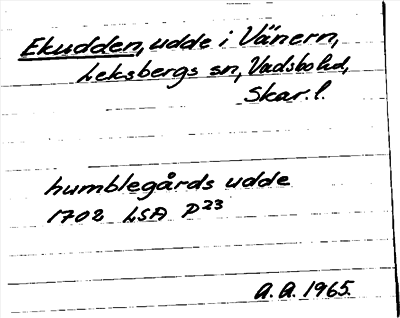 Ekudden, udde i Vänern,
Leksbergs sn, Vadsbo hd,
Skar. l.
humblegårds udde
1702 LSA P23
A. A. 1965.